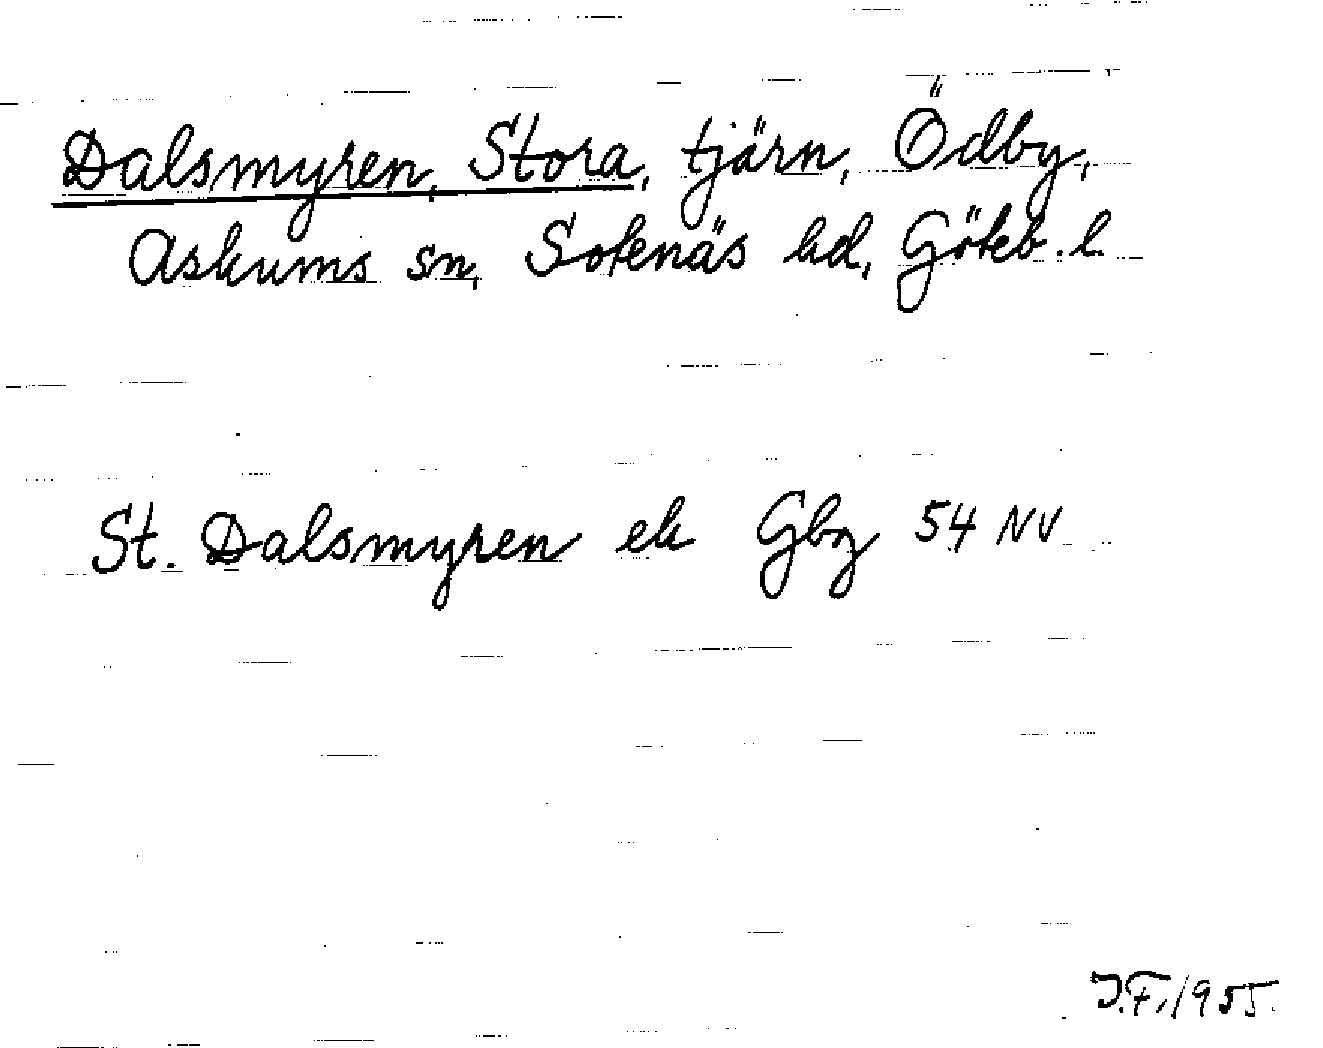 Dalsmyren, Stora, tjärn, Ödby,
Askums sn, Sotenäs hd, Göteb. l.
St. Dalsmyren ek Gbg 54 NV
J.F. 1955.